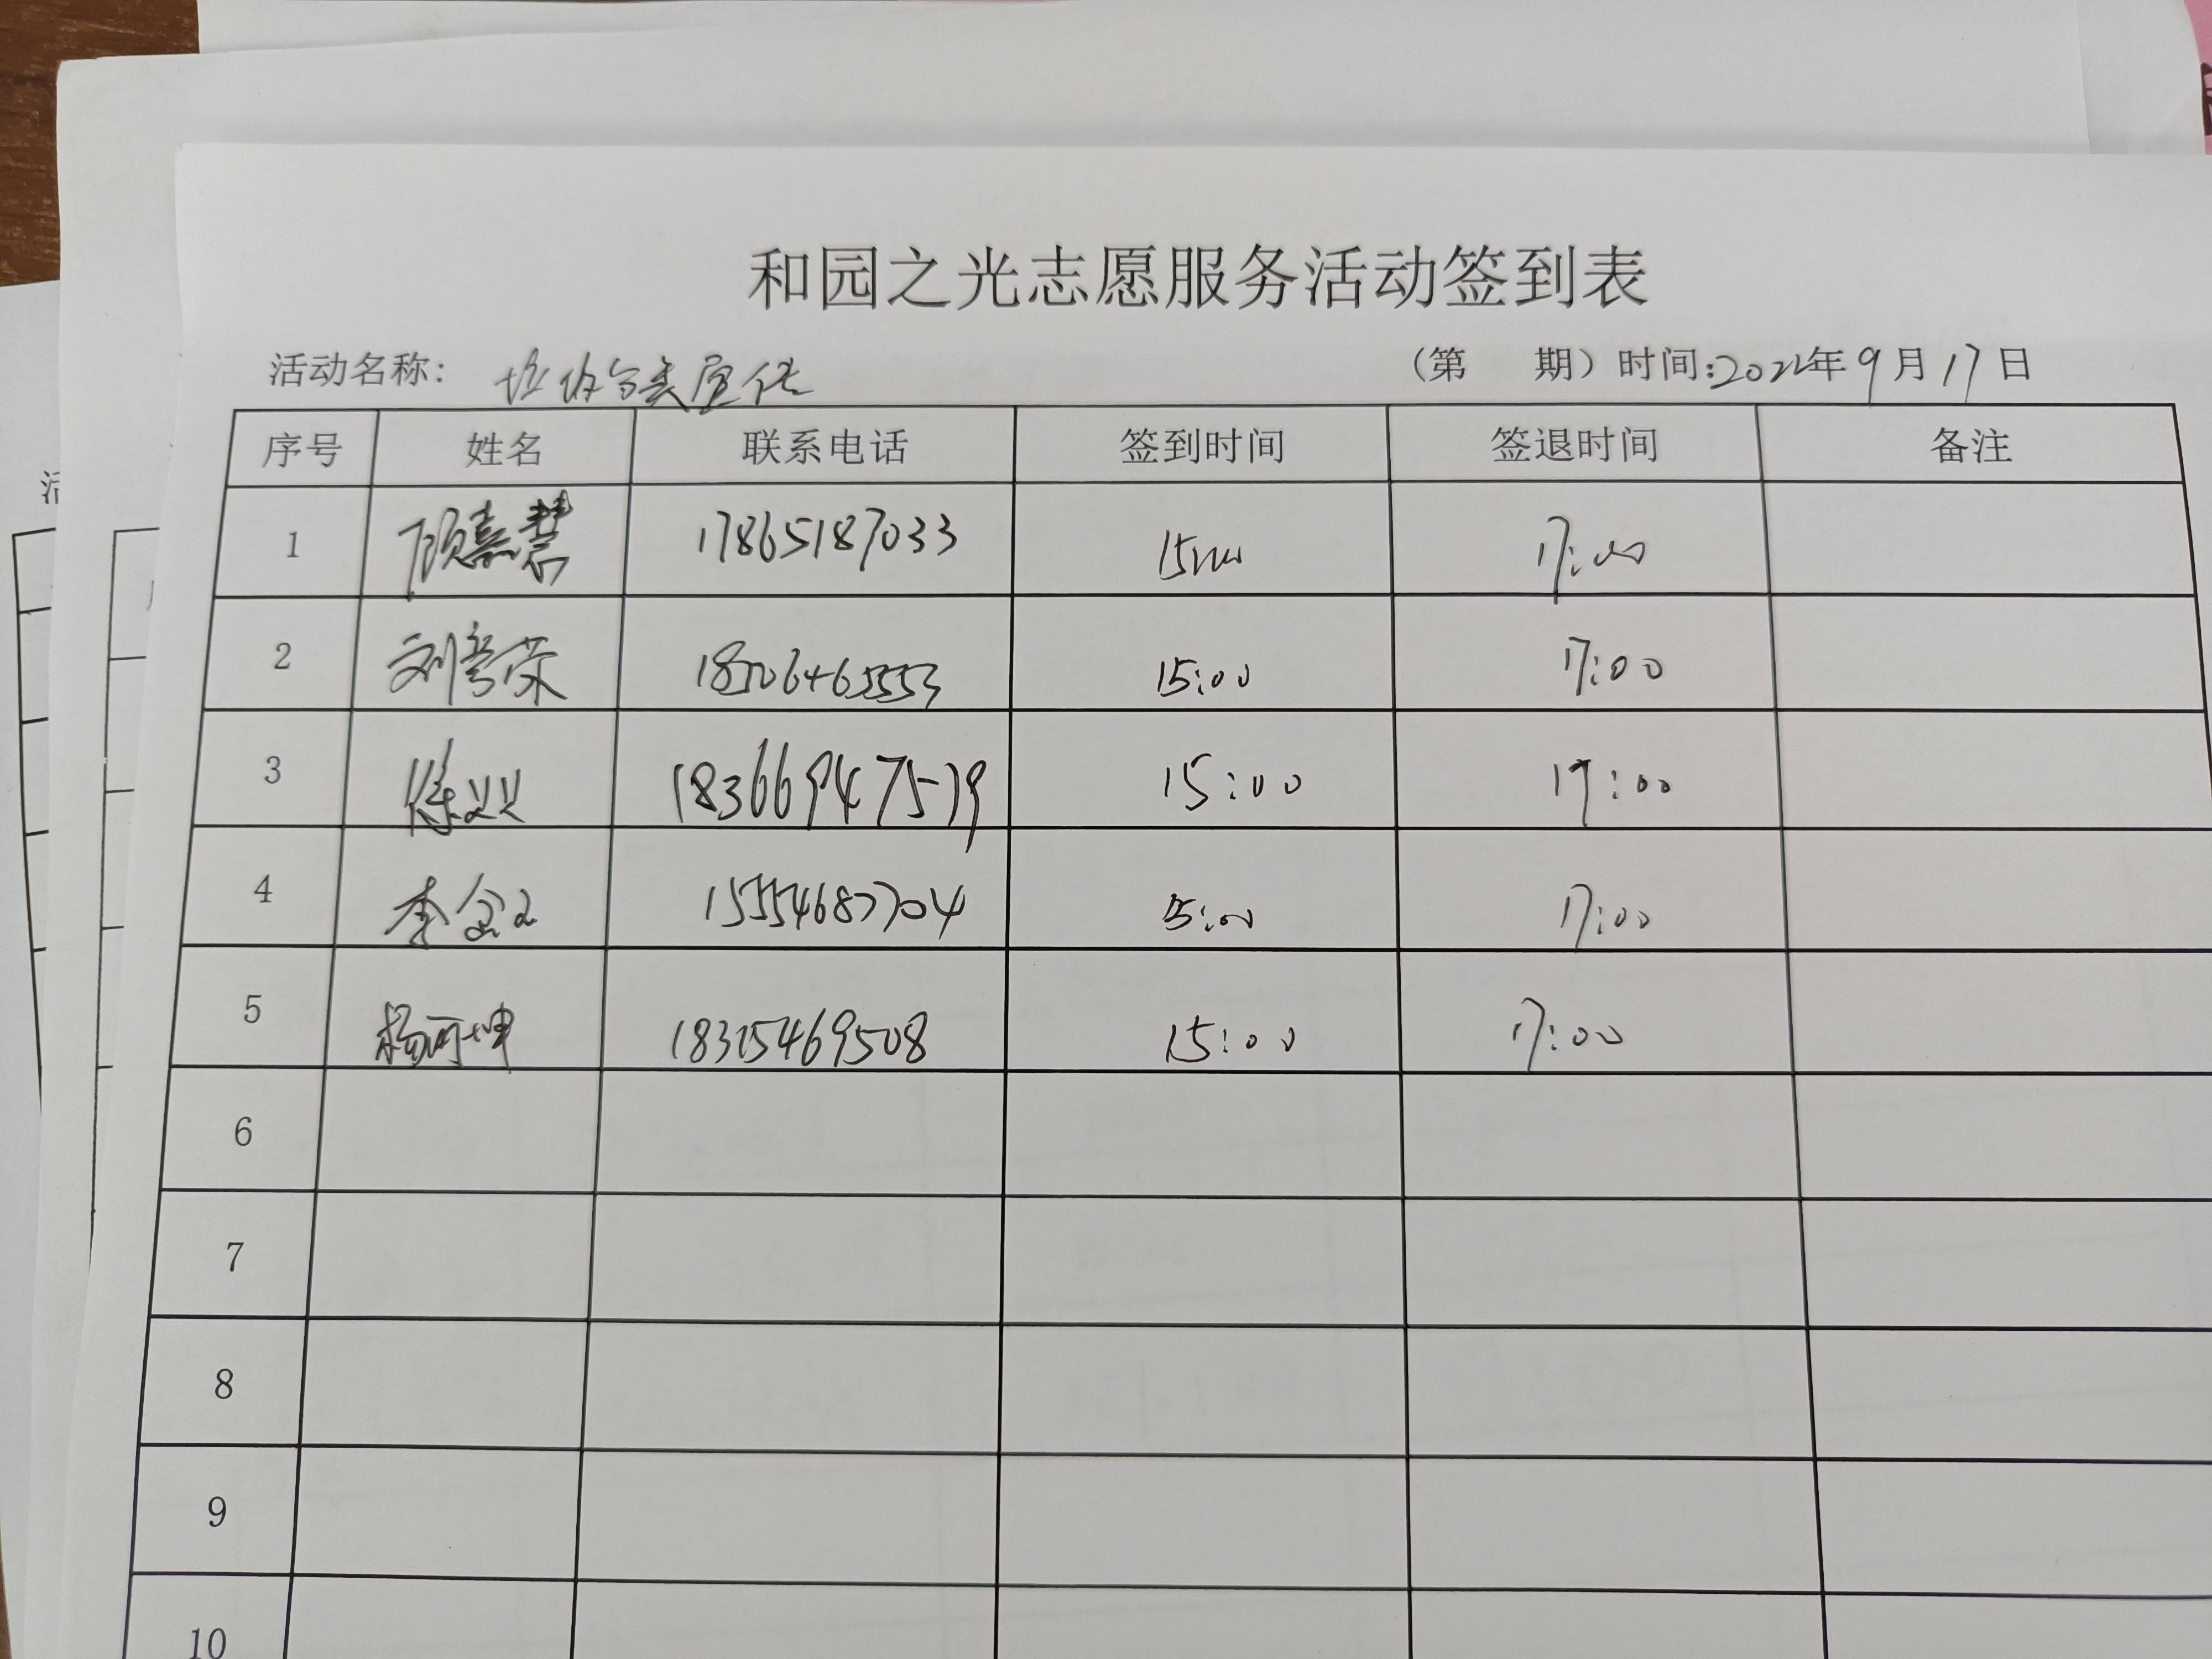 和园之光志愿服务活动签到表
活动名称: 垃圾分类宣传 (第 期) 时间:2022年9月17日
序号 姓名 联系电话 签到时间 签退时间 备注
1 顾嘉慧 17865187033 15:00 17:00
2 15:00 17:00
3 徐义 18366947579 15:00 17:00
4 李 15554687704 15:00 17:00
5 杨可坤 18315469508 15:00 17:00
6
7
8
9
10
活